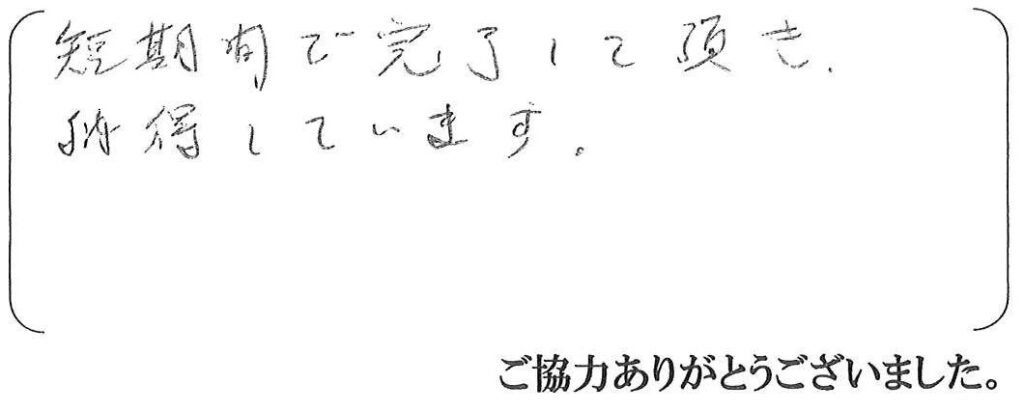 短期間で完了して頂き、
納得しています。
ご協力ありがとうございました。